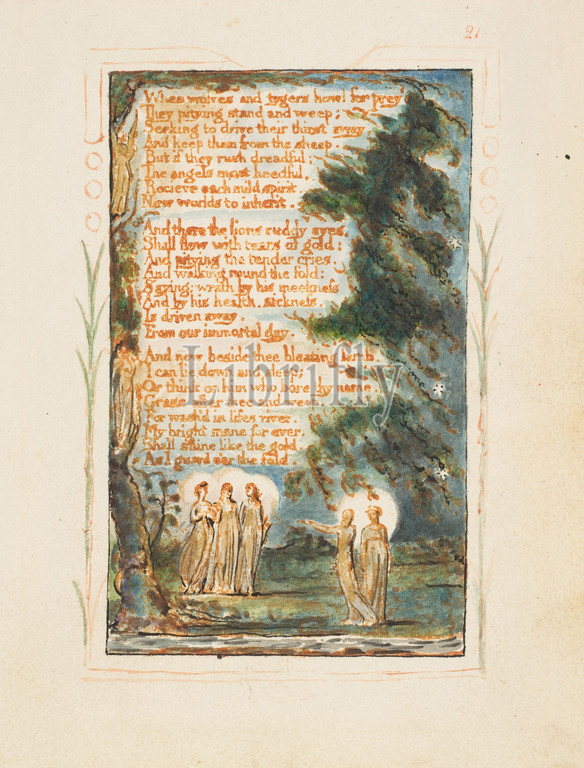 21
When wolves and tygers howl for prey
They pitying stand and weep;
Seeking to drive their thirst away,
And keep them from the sheep.
But if they rush dreadful;
The angels most heedful,
Recieve each mild spirit.
New worlds to inherit.
And there the lions ruddy eyes,
Shall flow with tears of gold:
And pitying the tender cries,
And walking round the fold:
Saying: wrath by his meekness
And by his health, sickness,
Is driven away,
From our immortal day.
And now beside thee bleating lamb,
I can lie down and sleep;
Or think on him who bore thy name,
Graze after thee and weep.
For wash'd in lifes river,
My bright mane for ever,
Shall shine like the gold,
As I guard oer the fold.
Librifly